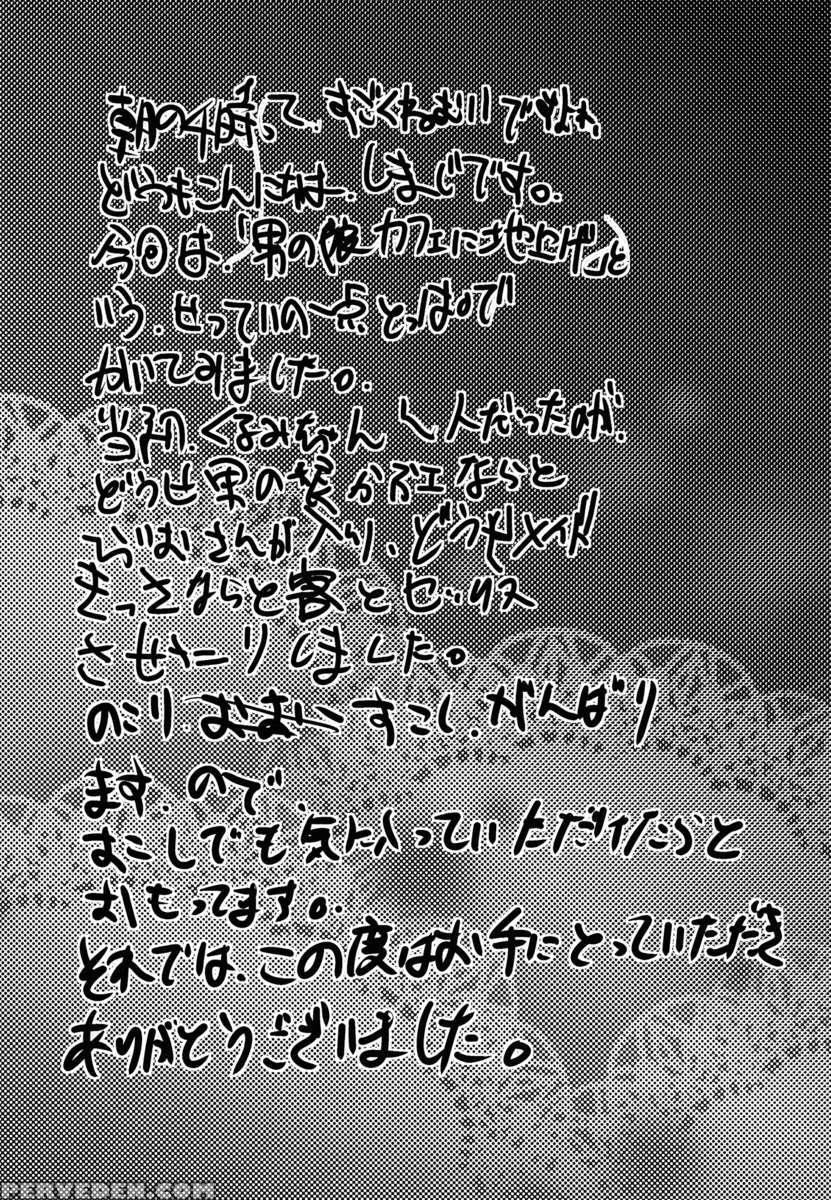 朝の4時って、すごくねむいですよね、
どうもこんにちは、しまじです。
今回は、「男の娘カフェに地上げ」と
いう、せっていの一点とっぱで
かいてみました。
当初、くるみちゃん1人だったのが、
どうせ男の娘かふェならと
さんが入り、どうせメイド
きっさならと客とセックス
させたりしました。
のこり すこし、がんばり
ます、ので、
すこしでも気に入っていただけたらと
おもってます。
それでは、この度はお手にとっていただき
ありがとうございました。
PERVEDEN.COM